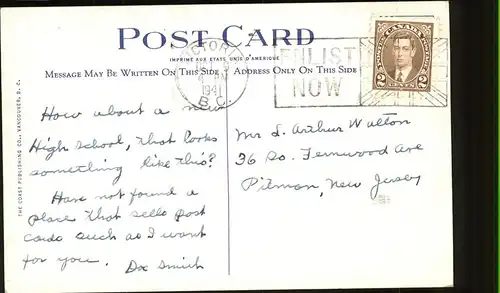 POST CARD
IMPRIMÉ AUX ETATS UNIS D'AMERIQUE
MESSAGE MAY BE WRITTEN ON THIS SIDE
ADDRESS ONLY ON THIS SIDE
VICTORIA
1941
B.C.
ENLIST
NOW
CANADA
2 CENTS 2
THE COAST PUBLISHING CO., VANCOUVER, B. C.
How about a new
High school, that looks
something like this?
Have not found a
place that sells post
cards such as I want
for you. Doc Smith
Mr L. Arthur Walton
36 So. Fernwood Ave
Pitman, New Jersey